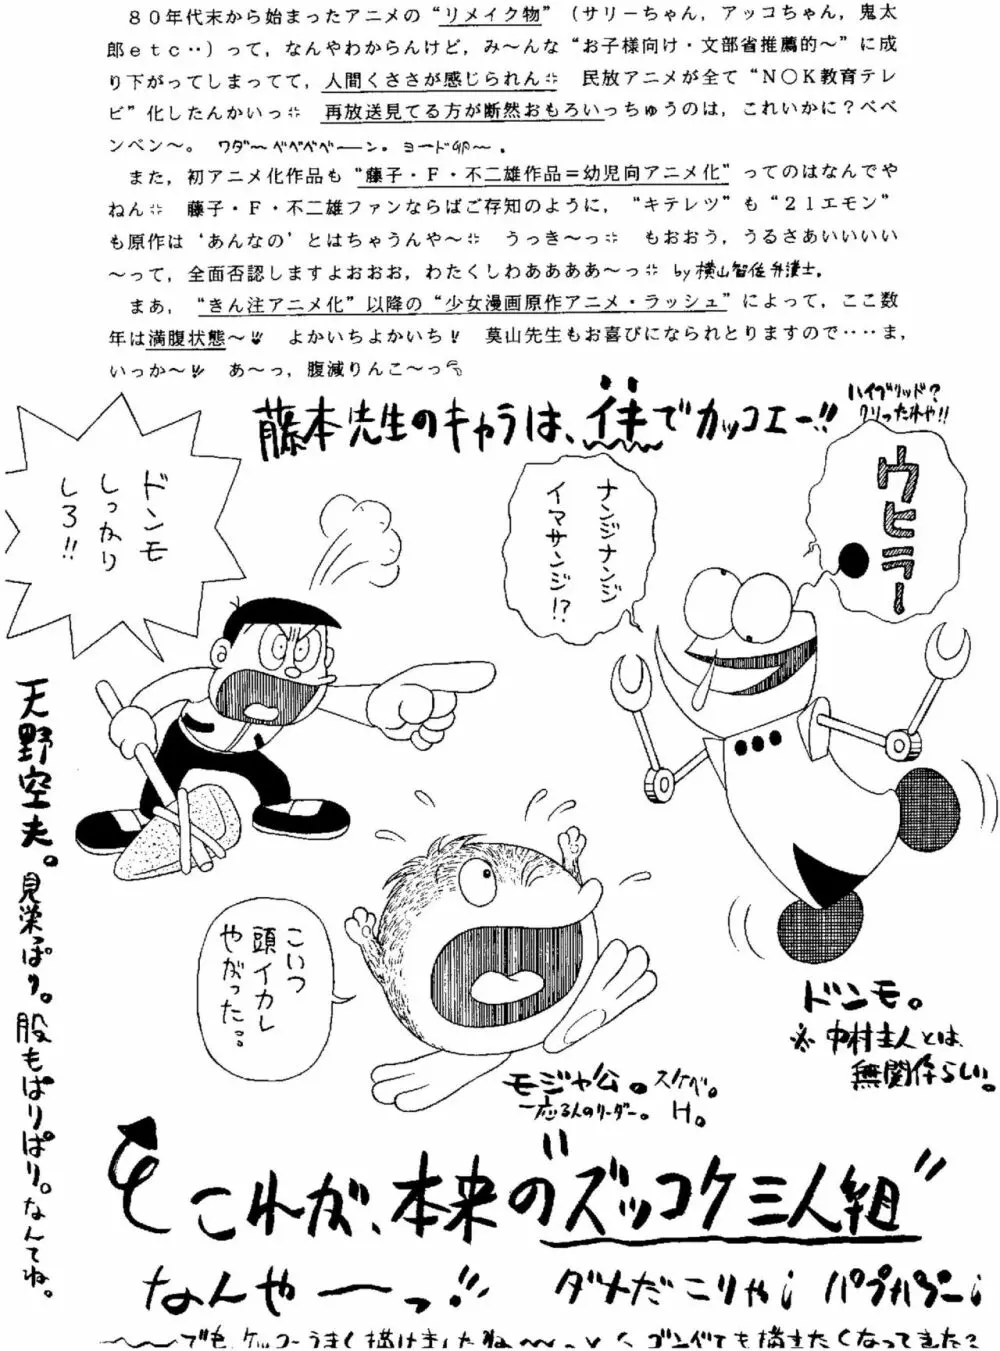 80年代末から始まったアニメの“リメイク物”（サリーちゃん，アッコちゃん，鬼太
郎ｅｔｃ‥）って，なんやわからんけど，み〜んな“お子様向け・文部省推薦的〜”に成
り下がってしまってて，人間くささが感じられん 民放アニメが全て“N○K教育テレ
ビ”化したんかいっ 再放送見てる方が断然おもろいっちゅうのは，これいかに？ベベ
ンベン〜。 ワダ〜ベベベベ〜ーン。ヨード卵〜。
また，初アニメ化作品も“藤子・Ｆ・不二雄作品＝幼児向アニメ化”ってのはなんでや
ねん 藤子・Ｆ・不二雄ファンならばご存知のように，“キテレツ”も“21エモン”
も原作は‘あんなの’とはちゃうんや〜 うっき〜っ もおおう，うるさあいいいい
〜って，全面否認しますよおおお，わたくしわああああ〜っ by 横山智佐弁護士。
まあ，“きん注アニメ化”以降の“少女漫画原作アニメ・ラッシュ”によって，ここ数
年は満腹状態〜!! よかいちよかいち! 莫山先生もお喜びになられとりますので‥‥ま，
いっか〜!! あ〜っ，腹減りんこ〜っ
藤本先生のキャラは、イキでカッコエー!!
ハイブリッド?
クリったれや!!
ウヒラー
ナンジナンジ
イマサンジ!?
ドンモ
しっかり
しろ!!
天野空夫。見栄ぱり。股もぱりぱり。なんてね。
こいつ
頭イカレ
やがった…
ドンモ。
※中村主人とは、
無関係らしい。
モジャ公。スケベ。
一応3人のリーダー。 H。
これが、本来の“ズッコケ三人組”
なんやーっ!!
ダメだこりゃ¡ パプパプー¡
でも、ケッコーうまく描けましたね
ゴンスケも描きたくなってきた?